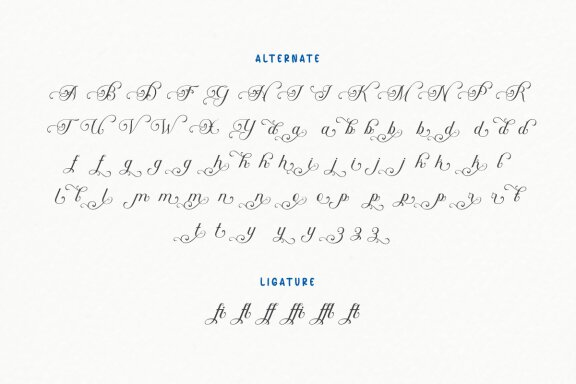 ALTERNATE
A B D F G H I J K M N P R
T U V W X Y a a a b b b b d d d d
f f g g g h h h h i i i j j k k h l
l l l m m m n n o o p p p p r r t
t t y y y z z z
LIGATURE
fi fl ff ffi ffl ft